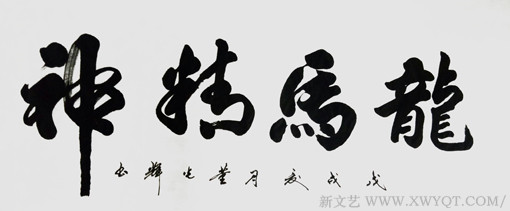 龍馬精神
戊戌夏月董光輝书
新文艺 WWW.XWYQT.COM/